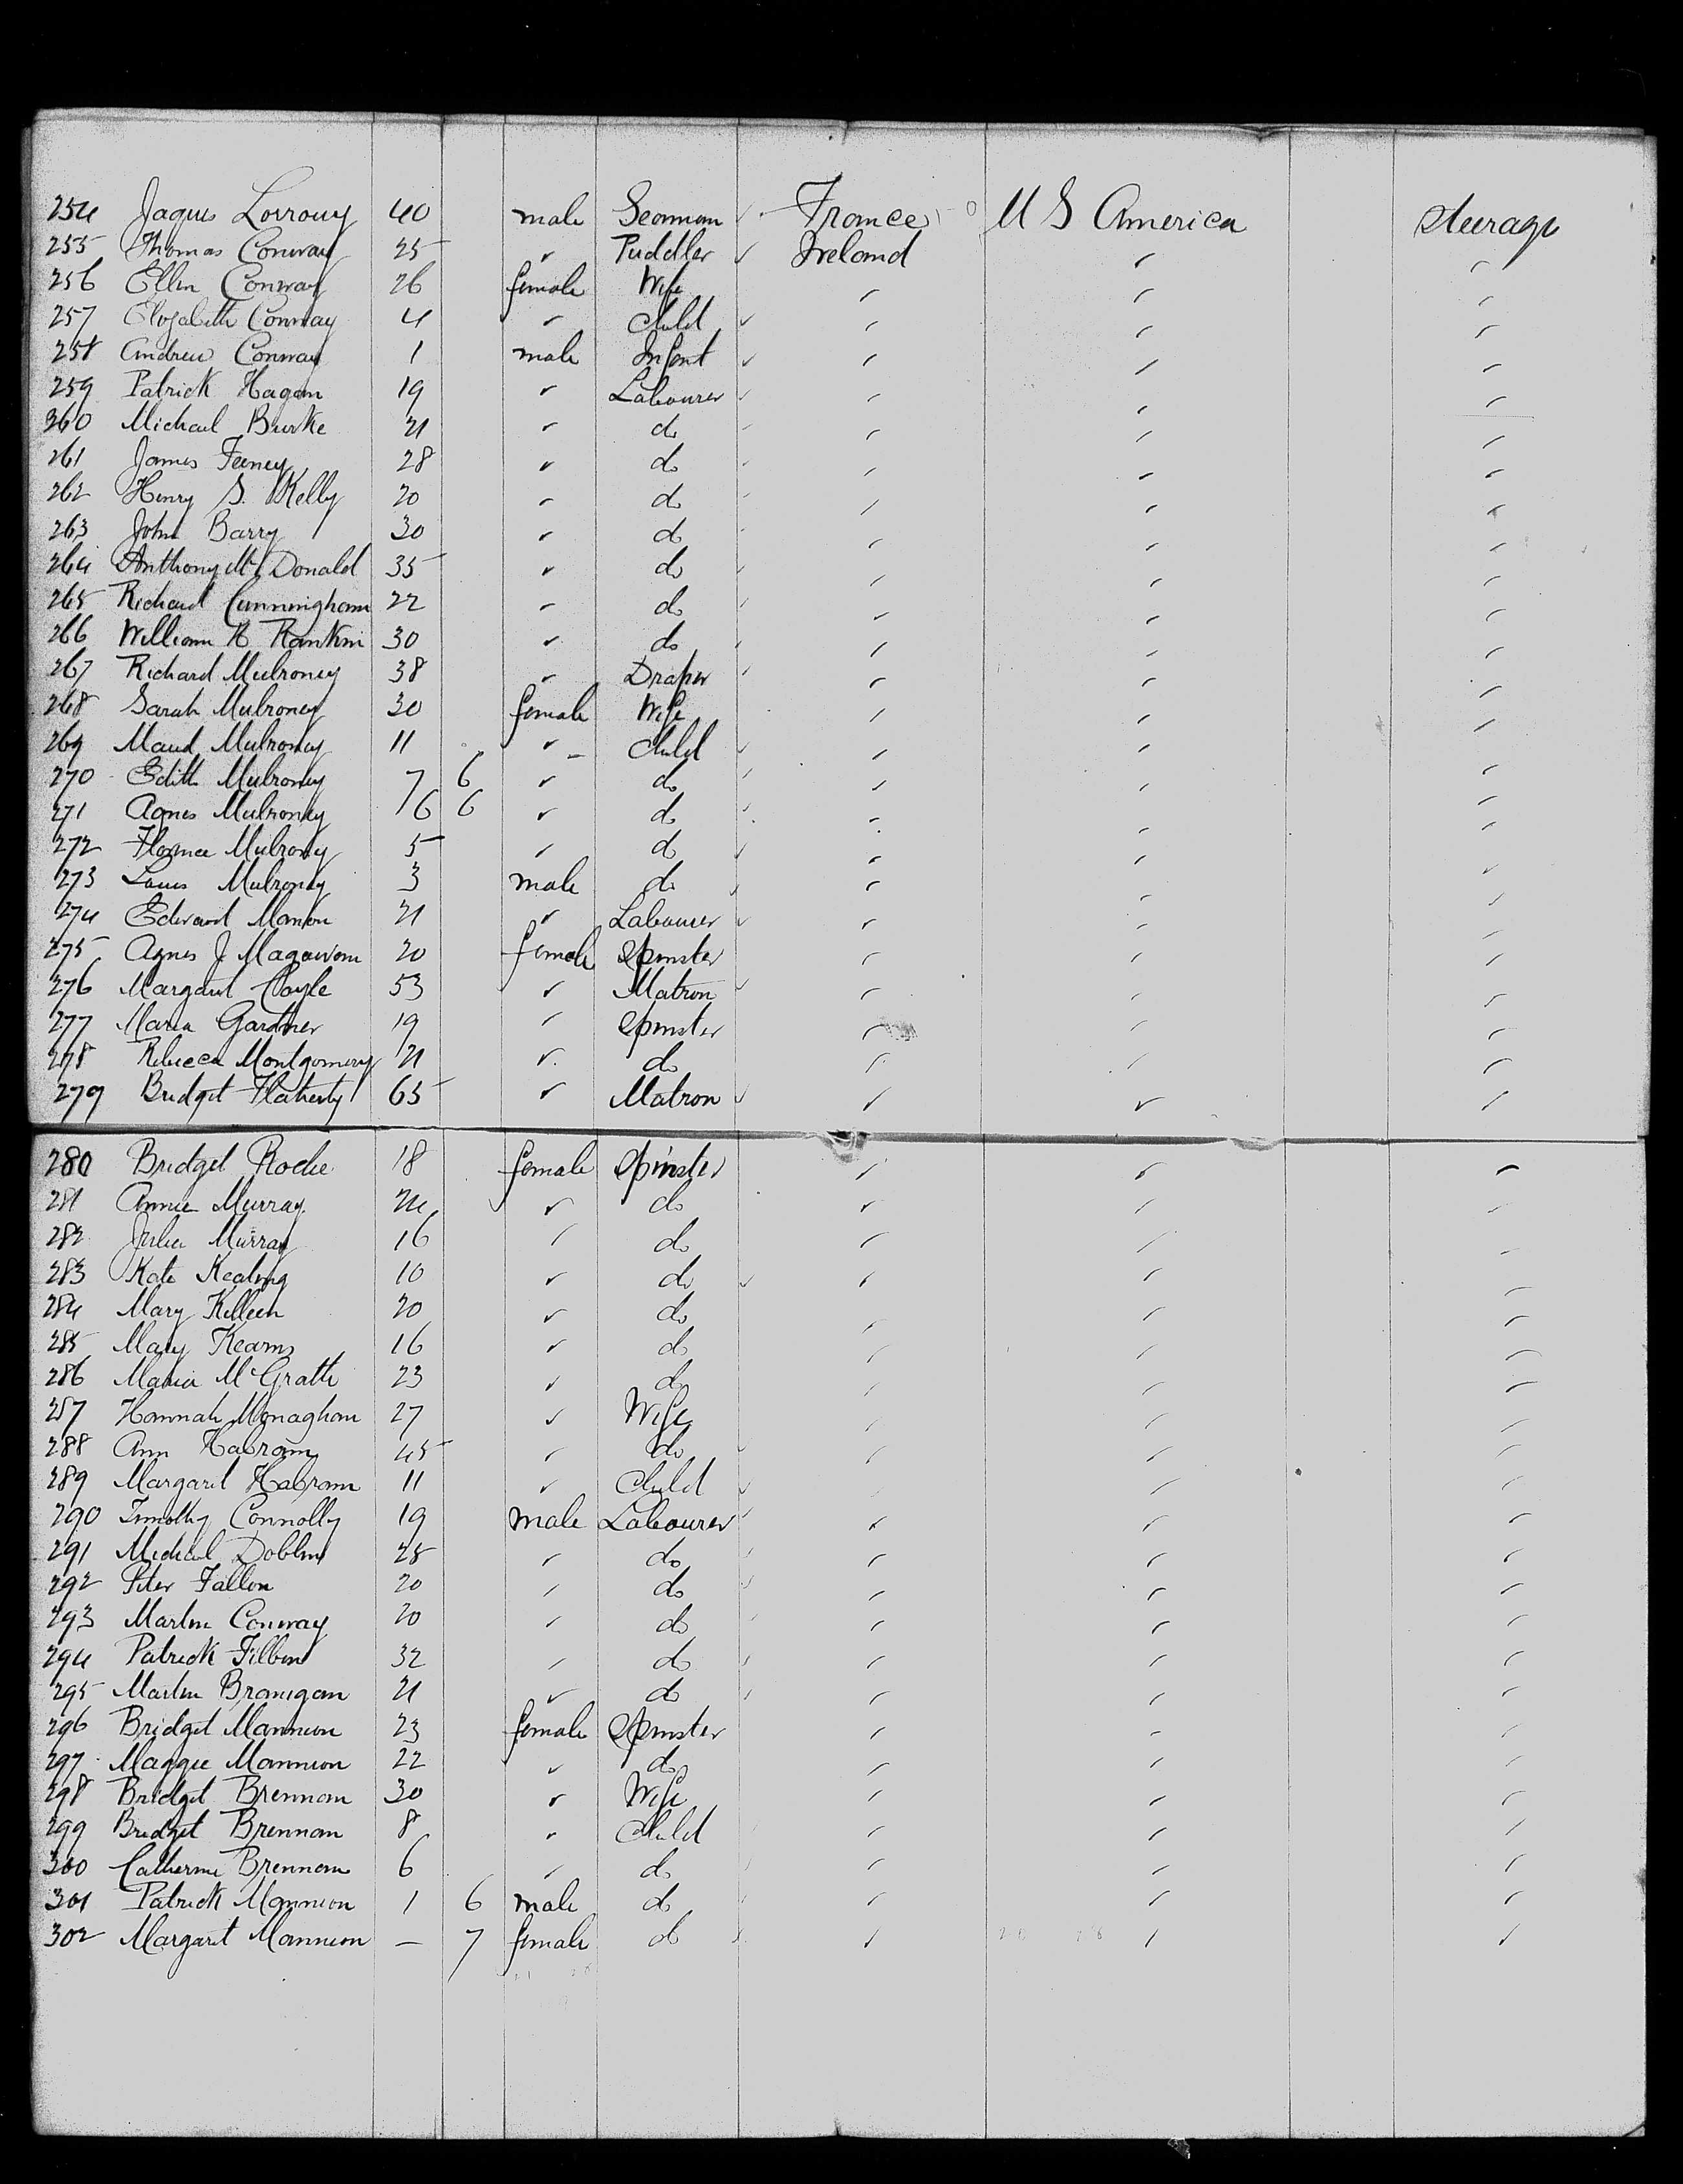 254 Jaques Lorrouy 40 male Seaman ✓ France U S America Steerage
255 Thomas Conway 25 " Puddler ✓ Ireland " "
256 Ellen Conway 26 female Wife " " "
257 Elizabeth Conway 4 " Child ✓ " " "
258 Andrew Conway 1 male Infant ✓ " " "
259 Patrick Hagan 19 " Labourer ✓ " " "
360 Michael Burke 21 " do " " "
261 James Feeney 28 " do " " "
262 Henry S. Kelly 20 " do " " "
263 John Barry 30 " do " " "
264 Anthony Mc Donald 35 " do " " "
265 Richard Cunningham 22 " do " " "
266 William R Rankin 30 " do " " "
267 Richard Mulroney 38 " Draper " " "
268 Sarah Mulroney 30 female Wife " " "
269 Maud Mulroney 11 " Child ✓ " " "
270 Edith Mulroney 7 6 " do " " "
271 Agnes Mulroney 6 6 " do " " "
272 Florence Mulrony 5 " do ✓ " " "
273 Louis Mulroney 3 male do ✓ " " "
274 Edward Manion 21 " Labourer ✓ " " "
275 Agnes J Magawom 20 female Spinster " " "
276 Margaret Coyle 53 " Matron ✓ " " "
277 Maria Gardner 19 " Spinster " " "
278 Rebecca Montgomery 21 " do " " "
279 Bridget Flaherty 65 " Matron ✓ " " "
280 Bridget Roche 18 female Spinster " " "
281 Annie Murray 24 " do " " "
282 Julia Murray 16 " do " " "
283 Kate Keating 10 " do ✓ " " "
284 Mary Killeen 20 " do " " "
285 Mary Kearns 16 " do " " "
286 Maria McGrath 23 " do " " "
287 Hannah Monaghan 27 " Wife " " "
288 Ann Habram 45 " do ✓ " " "
289 Margaret Habram 11 " Child ✓ " " "
290 Timothy Connolly 19 male Labourer ✓ " " "
291 Michael Doblin 28 " do " " "
292 Peter Fallon 20 " do " " "
293 Martin Conway 20 " do " " "
294 Patrick Filbin 32 " do " " "
295 Martin Branigan 21 " do " " "
296 Bridget Mannion 23 female Spinster " " "
297 Maggie Mannion 22 " do " " "
298 Bridget Brennan 30 " Wife " " "
299 Bridget Brennan 8 " Child " " "
300 Catherine Brennan 6 " do " " "
301 Patrick Mannion 1 6 male do " " "
302 Margaret Mannion — 7 female do " " "